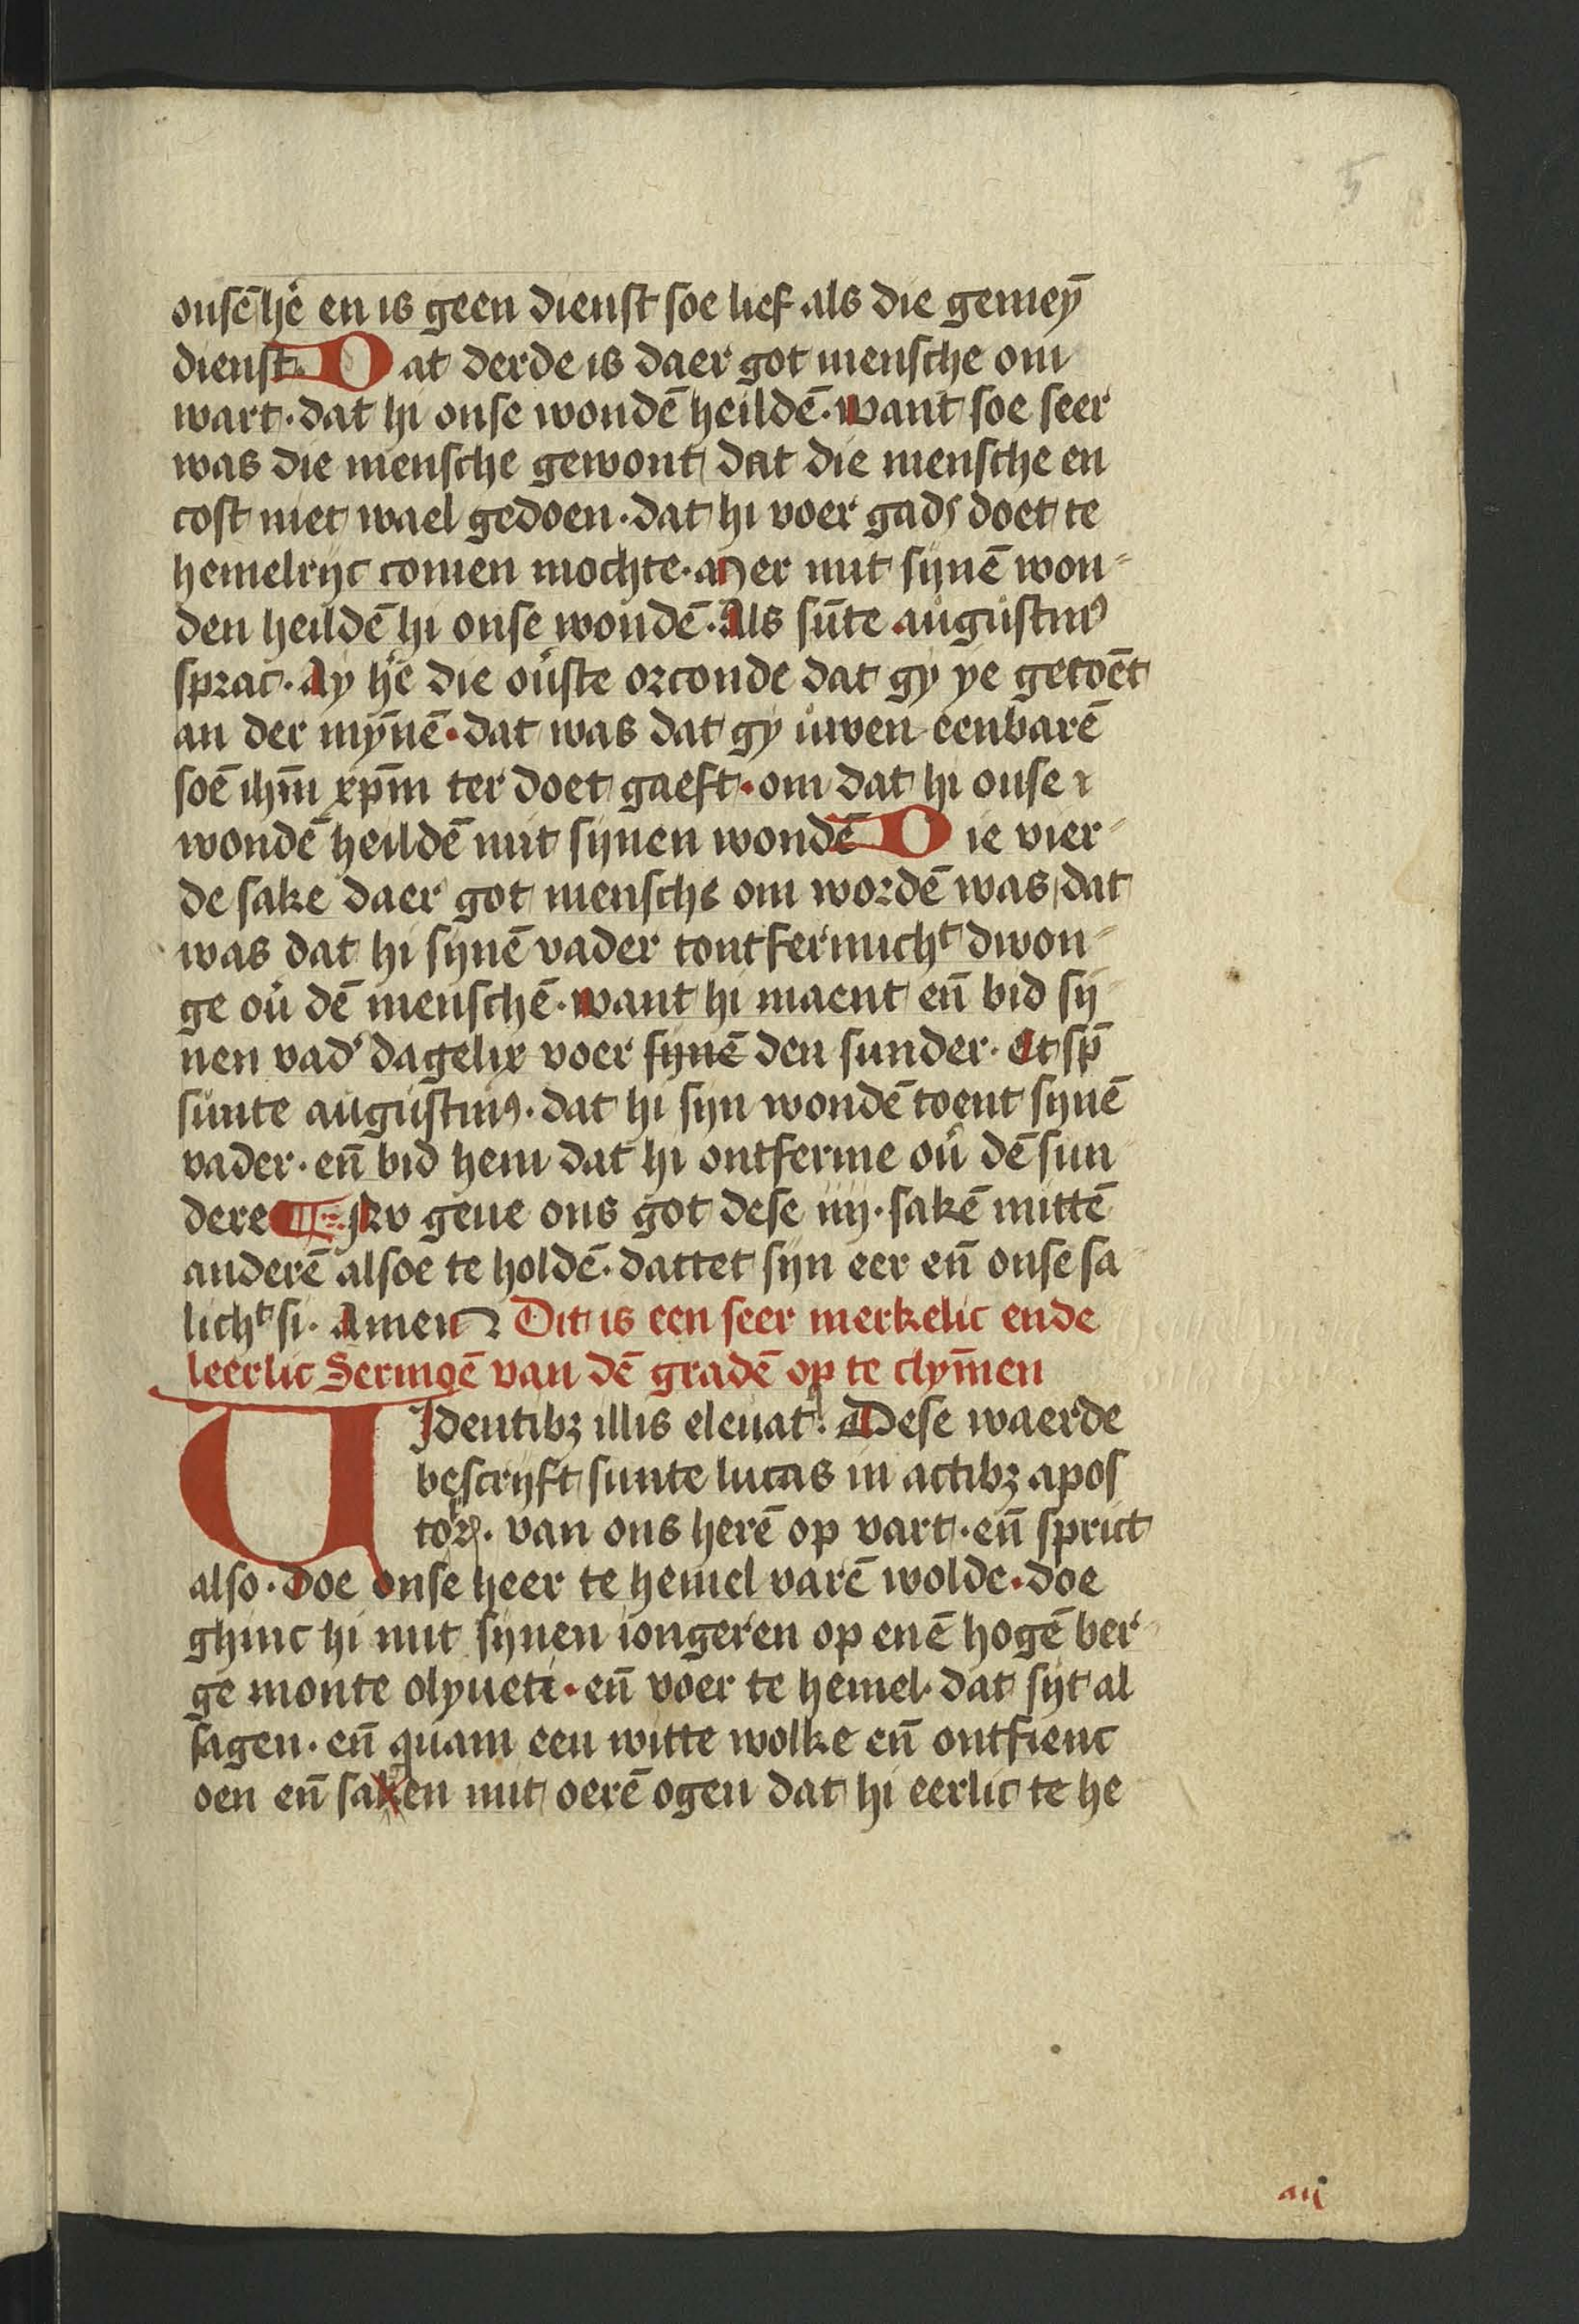 5
onsē h'e en is geen dienst soe lief als die gemey̅
dienst. Dat derde is daer got mensche om
wart. dat hi onse wondē heildē. want soe seer
was die mensche gewont dat die mensche en
cost niet wael gedoen. dat hi voer gads doet te
hemelrijc comen mochte. Mer mit sijnē won⸗
den heildē hi onse wondē. Als sūte augustinꝰ
sprac. Ay h'e die ou'ste orconde dat gy ye getoēt
an der my̅nē. dat was dat gy uwen eenbarē
soē ihm̅ xpm̅ ter doet gaeft. om dat hi onse
wondē heildē mit sijnen wondē Die vier⸗
de sake daer got mensche om wordē was, dat
was dat hi sijnē vader tontfermichᵗ dwon⸗
ge ou' dē menschē. want hi maent en̅ bid sij
nen vad' dagelix voer sijnē den sunder. Et sp̅
sunte augustinꝰ. dat hi sijn wondē toent sijnē
vader. en̅ bid hem dat hi ontferme ou' dē sun
dere ¶ Nv geue ons got dese iiij. sakē mittē
anderē alsoe te holdē. dattet sijn eer en̅ onse sa
lichᵗ si. Amen Dit is een seer merkelic ende
leerlic Sermoē van dē gradē op te clym̅en
VJdentibꝫ illis eleuatꝰ. Dese waerde
bescrijft sunte lucas in actibꝫ apos
toꝝ. van ons herē op vart. en̅ sprict
also. doe onse heer te hemel varē wolde. doe
ghinc hi mit sijnen iongeren op enē hogē ber
ge monte olyueti. en̅ voer te hemel. dat sijt al
sagen. en̅ quam een witte wolke en̅ ontfienc
oen en̅ saken mit oerē ogen dat hi eerlic te he
aij